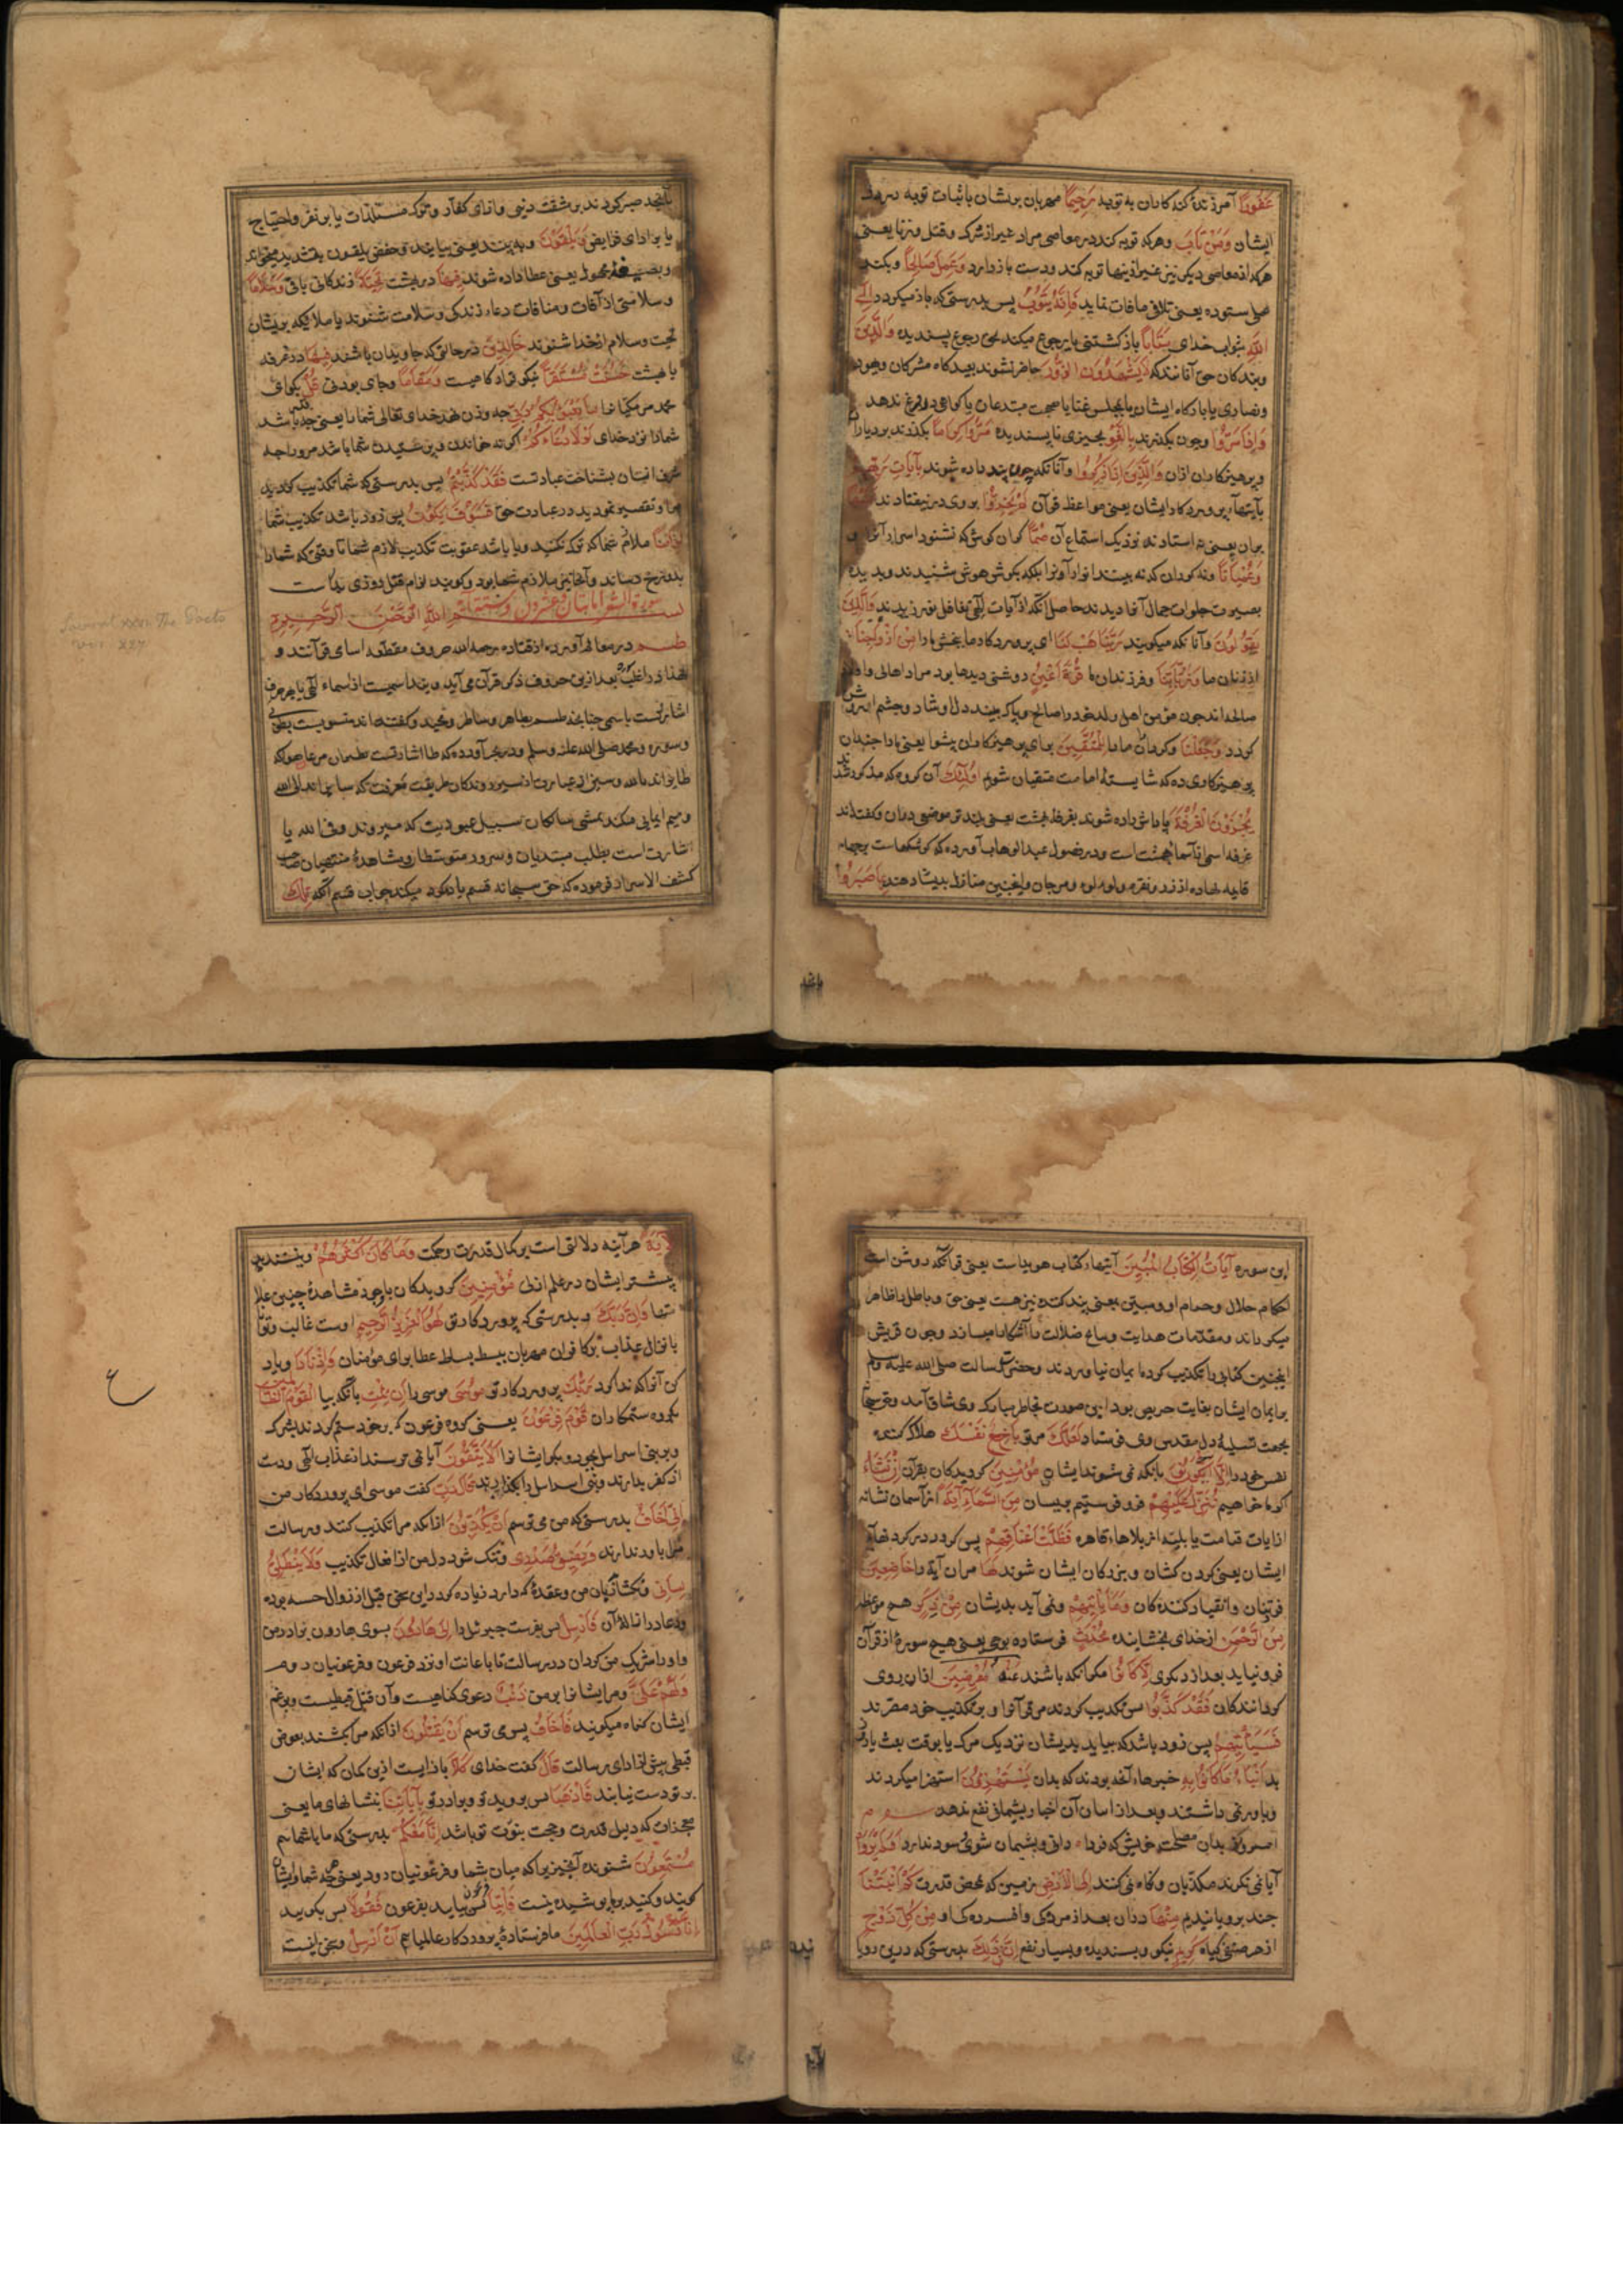 غَفُورًا آمرزندهٔ کنه کاران به توبه رَحِيمًا مهربان بریشان باثبات توبه
ایشان وَمَنْ تَابَ وهرکه توبه کند در معاصی مراد غیر از شرک وقتل وزنا یعنی
هرکه از معاصی دیکر نیز غیر ازینها توبه کند ودست بازدارد وَعَمِلَ صَالِحًا وبکند
عملی ستوده یعنی تلافی مافات نماید فَإِنَّهُ يَتُوبُ پس بدرستی که باز میکردد إِلَى
اللَّهِ بثواب خدای مَتَابًا باز کشتنی یا رجوع میکند بحق رجوع پسندیده وَالَّذِينَ
وبندکان حق آنانندکه لَا يَشْهَدُونَ الزُّورَ حاضر نشوند بعیدکاه مشرکان ویهود
ونصاری یا بازکاه ایشان یا بمجلس غنا یا صحبت مبتدعان یا کواهی دروغ ندهد
وَإِذَا مَرُّوا وچون بکذرند بِاللَّغْوِ بچیزی ناپسندیده مَرُّوا كِرَامًا بکذرند بردباران
وپرهیزکاران ازان وَالَّذِينَ إِذَا ذُكِّرُوا وآنانکه چون پند داده شوند بِآيَاتِ رَبِّهِمْ
بآیتهای پروردکار ایشان یعنی مواعظ قرآن لَمْ يَخِرُّوا بروی در نیفتادند عَلَيْهَا
بران یعنی نه استادند نزدیک استماع آن صُمًّا کران کوش که نشنود اسرار آنرا و
وَعُمْيَانًا ونه کوران که نه بینند انوار آنرا بلکه بکوش هوش شنیدند وبدیده
بصیرت جلوات جمال آنها دیدند حاصل آنکه از آیات الهی تغافل نورزیدند وَالَّذِينَ
يَقُولُونَ وآنانکه میکویند رَبَّنَا هَبْ لَنَا ای پروردکار ما ببخش مارا مِنْ أَزْوَاجِنَا
اززنان ما وَذُرِّيَّاتِنَا وفرزندان ما قُرَّةَ أَعْيُنٍ روشنی دیدها بود مراد اهالی واولاد
صالحه اند چون مؤمن اهل وولد خود را صالح وپاک بیند دل او شاد وچشم او روشن
کردد وَجَعَلْنَا وکردان مارا لِلْمُتَّقِينَ برای پرهیزکاران پیشوا یعنی مارا چندان
پرهیزکاری ده که شایستهٔ امامت متقیان شویم أُولَئِكَ آن کروه که مذکور شدند
يُجْزَوْنَ الْغُرْفَةَ پاداش داده شوند بغرفهٔ بهشت یعنی بلندتر موضعی دران وکفته‌اند
غرفه اسمی از اسماء بهشت است ودر فصول عبدالوهاب آورده که کوشکهاست بر چهار
قایمه نهاده از زر ونقره ولولوء ومرجان واینچنین منازل بدیشان دهند بِمَا صَبَرُوا
بآنچه صبر کردند بر مشقت دینی واذای کفار وترک مستلذات یا بر فقر واحتیاج
یا بر ادای فرایض وَيُلَقَّوْنَ وبه بینند یعنی بیابند وحفص یلقون بتشدید میخواند
وبصیغهٔ مجهول یعنی عطا داده شوند فِيهَا در بهشت تَحِيَّةً زندکانی باقی وَسَلَامًا
وسلامتی از آفات ومنافات دعاء زندکی وسلامت شنوند یا ملایکه بریشان
تحیت وسلام از خدا شنوند خَالِدِينَ در حالتی که جاویدان باشند فِيهَا در غرفه
یا بهشت حَسُنَتْ مُسْتَقَرًّا نیکو قرارکاهیست وَمُقَامًا وجای بودنی قُلْ بکو ای
محمد مر مکیانرا مَا يَعْبَؤُا بِكُمْ رَبِّي چه وزن نهد خدای تعالی شما را یعنی چه قدر باشد
شمارا نزد خدای لَوْلَا دُعَاؤُكُمْ اکر نه خواندن وپرستیدن شما باشد مر اورا چه
شرف انسان بشناخت عبادتست فَقَدْ كَذَّبْتُمْ پس بدرستی که شما تکذیب کردید
مرا وتقصیر نمودید در عبادت حق فَسَوْفَ يَكُونُ پس زود باشد تکذیب شما
لِزَامًا ملازم شما که ترک نکنید ویا باشد عقوبت تکذیب لازم شما تا وقتی که شمارا
بدوزخ رساند وآنجا نیز ملازم شما بود وکویند لزام قتل روزی بدر است
سورة الشعرا مایتان وعشرون وستة آیة بسم اللَّهِ الرَّحْمَنِ الرَّحِيمِ
طسم در معالم آورده از قتاده رحمه الله حروف مقطعه اسامی قرآنند و
لهذا در اغلب بعد ازین حروف ذکر قرآن می آید وینداسمیست از اسماء الهی یا هر حرف
اشارتست باسمی چنانچه طسم بطاهر وساطر ومجید وکفته اند منسوبست بطوبی
وسوره ومحمد صلی الله علیه وسلم ودر بحر آورده که طا اشارتست بطیران مرغان هواکه
طایراند بالله وسین از عبارت از سیر روندکان طریقت معرفت که سایراند الی الله
ومیم ایمایی میکند بمشی سالکان سبیل عبودیت که میروند وفی الله یا
اشارت است بطلب مبتدیان وسرور متوسطان ومشاهدهٔ منتهیان صاحب
کشف الاسرار فرموده که حق سبحانه قسم یاد میکند جواب قسم آنکه تِلْكَ
Surat xxvi The Poets
ver. 227
بآنچه
این سوره آيَاتُ الْكِتَابِ الْمُبِينِ آیتهاء کتاب هویداست یعنی قرآنکه روشن است
احکام حلال وحرام او ومبین بمعنی بیدا کننده نیز هست یعنی حق وباطل را ظاهر
میکرداند ومقدمات هدایت ومبانی ضلالت را آشکارا میسازد وچون قریش
اینچنین کتابی را تکذیب کرده ایمان نیاوردند وحضرت رسالت صلی الله علیه وسلم
برایمان ایشان بغایت حریص بود این صورت بخاطر مبارک وی شاق آمد وحق سبحانه
بجهت تسلیهٔ دل مقدس وی فرستاد لَعَلَّكَ مرتو بَاخِعٌ نَفْسَكَ هلاک کننده
نفس خود را أَلَّا يَكُونُوا بآنکه نمی شوند ایشان مُؤْمِنِينَ کرویدکان بقرآن إِنْ نَشَأْ
اکر ما خواهیم نُنَزِّلْ عَلَيْهِمْ فرو فرستیم بریشان مِنَ السَّمَاءِ آيَةً از آسمان نشانه
از آیات قیامت یا بلیهٔ از بلاهاء قاهره فَظَلَّتْ أَعْنَاقُهُمْ پس کردد در کردنهای
ایشان یعنی کردن کشان وبزرکان ایشان شوند لَهَا مران آیة را خَاضِعِينَ
فروتنان وانقیاد کنندکان وَمَا يَأْتِيهِمْ ونمی آید بدیشان مِنْ ذِكْرٍ هیچ موعظه
مِنَ الرَّحْمَنِ از خدای بخشاینده مُحْدَثٍ فرستاده بوحی یعنی هیچ سورهٔ از قرآن
فرو نیاید بعد از دیکری إِلَّا كَانُوا مکر آنکه باشند عَنْهُ مُعْرِضِينَ ازان روی
کردانندکان فَقَدْ كَذَّبُوا پس تکذیب کردند مر قرآنرا وبر تکذیب خود مصرند
فَسَيَأْتِيهِمْ پس زود باشد که بیاید بدیشان نزدیک مرک یا بوقت بعث یا در
بدر أَنْبَاءُ مَا كَانُوا بِهِ خبرهاء آنچه بودند که بدان يَسْتَهْزِؤُنَ استهزا میکردند
وباور نمی داشتند وبعد از اسان آن اخبار پشیمانی نفع ندهد
امروز بدان مصلحت خویش که فردا دانی وپشیمان شوی سود ندارد أَوَلَمْ يَرَوْا
آیا نمی نکرند مکذبان ونکاه نمی کنند إِلَى الْأَرْضِ بزمین که بمحض قدرت كَمْ أَنْبَتْنَا
چند برویانیدیم فِيهَا دران بعد از مردکی وافسردکی او مِنْ كُلِّ زَوْجٍ
از هر صنفی کیاه كَرِيمٍ نیکو وپسندیده وبسیار نفع إِنَّ فِي ذَلِكَ بدرستی که درین رویا
نیدن
لَآيَةً هرآینه دلالتی است بر کمال قدرت وحکمت وَمَا كَانَ أَكْثَرُهُمْ ونیستند
بیشتر ایشان در علم ازلی مُؤْمِنِينَ کرویدکان باوجود مشاهدهٔ چنین علا
متها وَإِنَّ رَبَّكَ وبدرستی که پروردکار تو لَهُوَ الْعَزِيزُ الرَّحِيمُ اوست غالب وتوانا
بانزال عذاب بر کافران مهربان ببسط بساط عطا برای مؤمنان وَإِذْ نَادَى ویاد
کن آنرا که ندا کرد رَبُّكَ پروردکار تو مُوسَى موسی را أَنِ ائْتِ بآنکه بیا الْقَوْمَ الظَّالِمِينَ
بکروه ستمکاران قَوْمَ فِرْعَوْنَ یعنی کروه فرعون که بر خود ستم کردند بشرک
وبر بنی اسرائیل بجور وبکو ایشانرا أَلَا يَتَّقُونَ آیا نمی ترسند از عذاب الهی ودست
از کفر بدارند وبنی اسرائیل را بکذارند قَالَ رَبِّ کفت موسی ای پروردکار من
إِنِّي أَخَافُ بدرستی که من می ترسم أَنْ يُكَذِّبُونِ ازآنکه مرا تکذیب کنند ورسالت
مرا باور ندارند وَيَضِيقُ صَدْرِي وتنک شود دل من از افعال تکذیب وَلَا يَنْطَلِقُ
لِسَانِي ونکشاید زبان من وعقدهٔ که دارد زیاده کردد این سخن قبل از زوال حسه بوده
ودعا در ازالهٔ آن فَأَرْسِلْ پس بفرست جبرئیل را إِلَى هَارُونَ بسوی هارون برادر من
واورا شریک من کردان در رسالت تا باعانت او نزد فرعون وفرعونیان روم
وَلَهُمْ عَلَيَّ ومر ایشانرا بر من ذَنْبٌ دعوی کناهیست وآن قتل قبطیست وبزعم
ایشان کناه میکویند فَأَخَافُ پس می ترسم أَنْ يَقْتُلُونِ ازآنکه مرا بکشند بعوض
قبطی پیش از ادای رسالت قَالَ کفت خدای كَلَّا بازایست ازین کمان که ایشان
بر تو دست نیابند فَاذْهَبَا پس بروید تو وبرادر تو بِآيَاتِنَا بنشانهای ما یعنی
معجزات که دلیل قدرت وحجت نبوت تو باشد إِنَّا مَعَكُمْ بدرستی که ما باشماییم
مُسْتَمِعُونَ شنونده آنچیز را که میان شما وفرعونیان رود یعنی هرچه شما وایشان
کویند وکنید بر ما پوشیده نیست فَأْتِيَا پس بیایید بفرعون فَقُولَا پس بکویید
إِنَّا رَسُولُ رَبِّ الْعَالَمِينَ ما فرستادهٔ پروردکار عالمیانیم أَنْ أَرْسِلْ وسخن اینست
ع